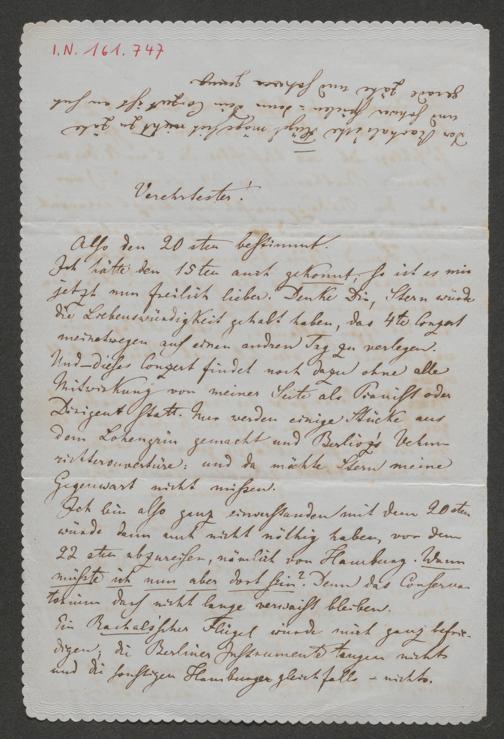 I.N. 161.747
Der Bachals'sche Flügel möge recht zu gute
und schwer spielen: denn dem Conzert ist er gut
gerade gute und schwere genug
Verehrtester!
Also den 20sten bestimmt.
Ich hätte den 15ten auch gekonnt, so ist es mir
jetzt nun freilich lieber. Denke Dir, Stern würde
die Liebenswürdigkeit gehabt haben, das 4te Conzert
meinetwegen auf einen andren Tag zu verlegen.
Und dieses Conzert findet noch dazu ohne alle
Mitwirkung von meiner Seite als Pianist oder
Dirigent statt. Nur werden einige Stücke aus
dem Lohengrin gemacht und Berlioz's Vehm-
richterouvertüre: und da möchte Stern meine
Gegenwart nicht missen.
Ich bin also ganz einverstanden mit dem 20sten
würde dann auch nicht nöthig haben, vor dem
22sten abzureisen, nämlich von Hamburg. Wann
müsste ich nun aber dort sein? Denn das Conserva-
torium darf nicht lange verwaist bleiben.
Ein Bachals'scher Flügel würde mich ganz befrie-
digen; die Berliner Instrumente taugen nichts
und die sonstigen Hamburger gleichfalls – nichts.